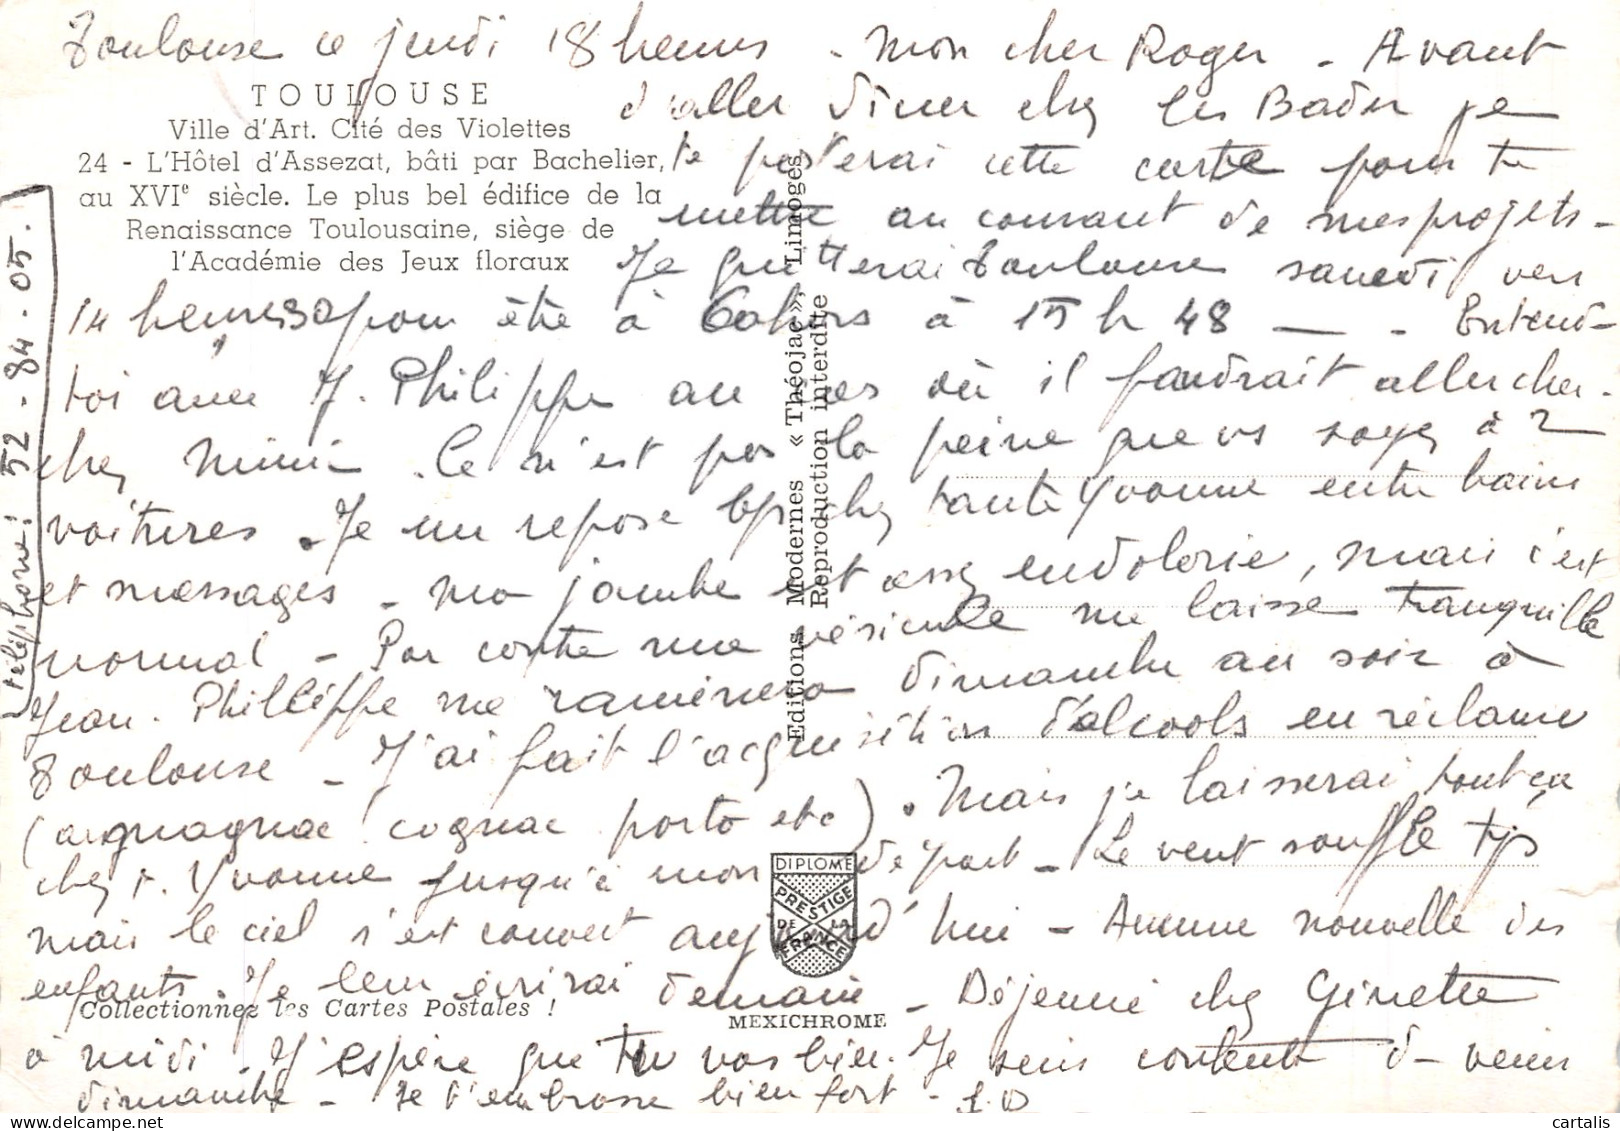 Toulouse ce jeudi 18 heures - Mon cher Roger - Avant
d'aller diner chez les Bader je
te posterai cette carte pour te
mettre au courant de mes projets -
Je quitterai Toulouse samedi vers
14 heures 30 pour être à Cahors à 15 h 48 — - Entend-
toi avec J. Philippe au cas où il faudrait aller cher-
cher Mimi - Ce n'est pas la peine que vs soyez à 2
voitures - Je me repose bp chez tante Yvonne entre bains
et massages - ma jambe est assez endolorie, mais c'est
normal - Par contre ma vésicule me laisse tranquille
Jean-Philippe me ramènera dimanche au soir à
Toulouse - J'ai fait l'acquisition d'alcools en réclame
(armagnac cognac porto etc). Mais je laisserai tout ça
chez t. Yvonne jusqu'à mon départ - Le vent souffle tjs
mais le ciel s'est couvert aujourd'hui - Aucune nouvelle des
enfants. Je leur écrirai demain - Déjeuné chez Ginette
à midi - J'espère que tu vas bien. Je suis contente d- venir
dimanche - Je t'embrasse bien fort -
téléphone! 52-84-05.
TOULOUSE
Ville d'Art. Cité des Violettes
24 - L'Hôtel d'Assezat, bâti par Bachelier,
au XVIe siècle. Le plus bel édifice de la
Renaissance Toulousaine, siège de
l'Académie des Jeux floraux
Editions Modernes « Théojac », Limoges
Reproduction interdite
DIPLOME
PRESTIGE
DE LA
FRANCE
Collectionnez les Cartes Postales !
MEXICHROME
cartalis
delcampe.net